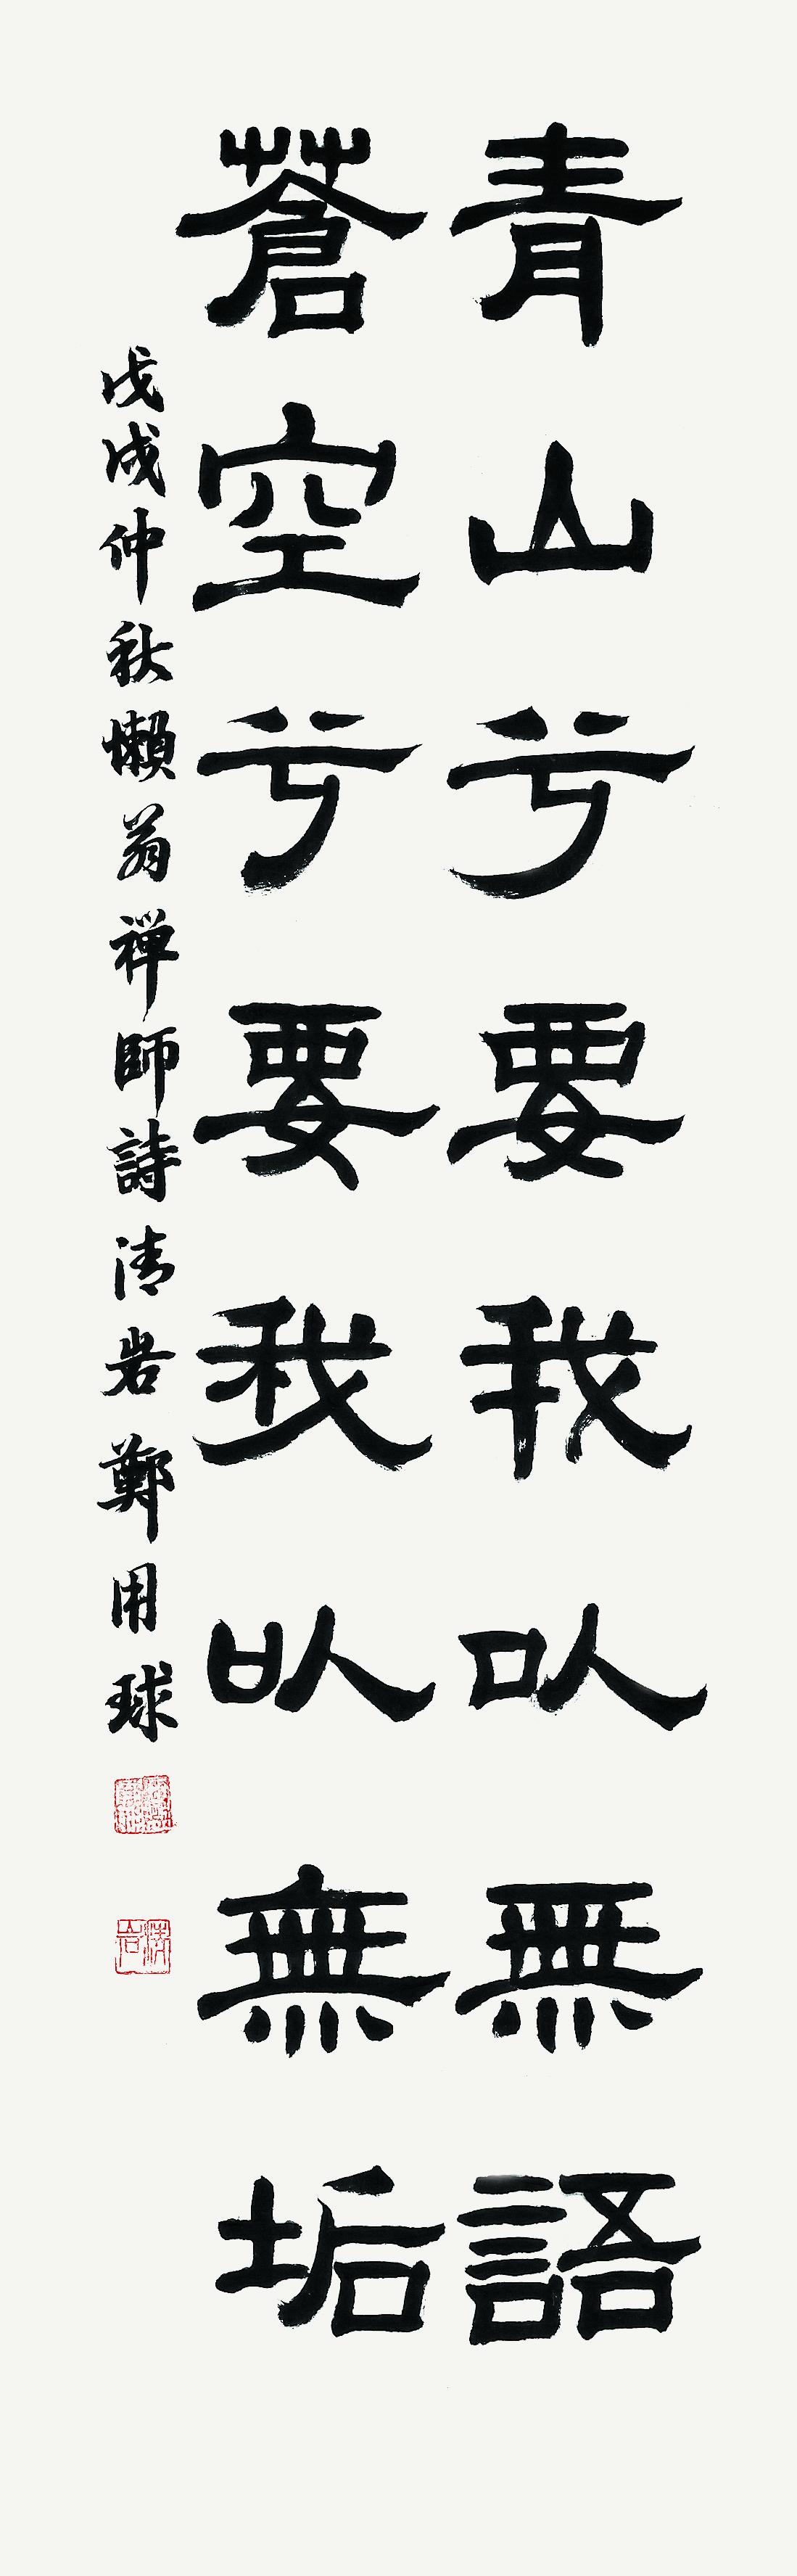 青山兮要我以無語
蒼空兮要我以無垢
戊戌仲秋懶翁禪師詩清岩鄭用球